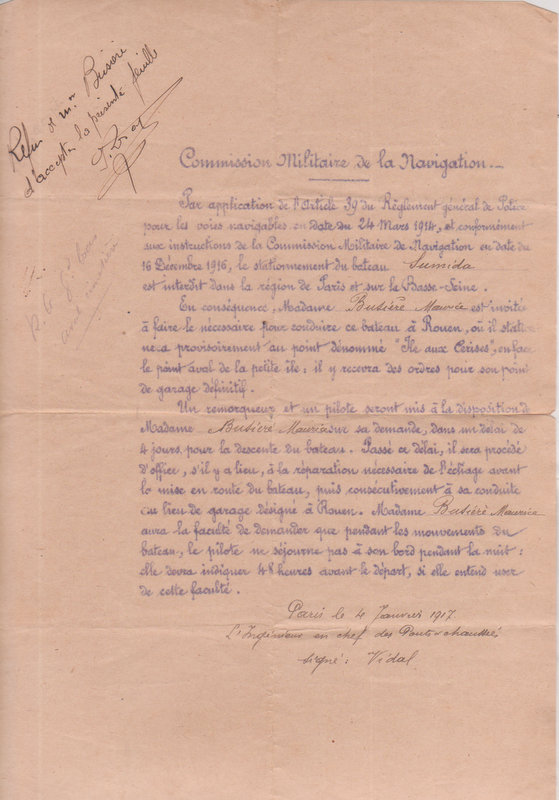 Refus de Mr Busière
d'accepter la présente feuille
Commission Militaire de la Navigation.
Par application de l'Article 39 du Règlement général de Police
pour les voies navigables en date du 24 Mars 1914, et conformément
aux instructions de la Commission Militaire de Navigation en date du
16 Décembre 1916, le stationnement du bateau Sumida
est interdit dans la région de Paris et sur la Basse-Seine.
En conséquence, Madame Busière Maurice est invitée
à faire le nécessaire pour conduire ce bateau à Rouen, où il station
nera provisoirement au point dénommé "Ile aux Cerises", en face
le point aval de la petite île : il y recevra des ordres pour son point
de garage définitif.
Un remorqueur et un pilote seront mis à la disposition de
Madame Busière Maurice sur sa demande, dans un délai de
4 jours pour la descente du bateau. Passé ce délai, il sera procédé
d'office, s'il y a lieu, à la réparation nécessaire de l'échage avant
la mise en route du bateau, puis consécutivement à sa conduite
au lieu de garage désigné à Rouen. Madame Busière Maurice
aura la faculté de demander que pendant les mouvements du
bateau, le pilote ne séjourne pas à son bord pendant la nuit :
elle devra indiquer 48 heures avant le départ, si elle entend user
de cette faculté.
Paris le 4 Janvier 1917.
L'Ingénieur en chef des Ponts et chaussées
signé : Vidal